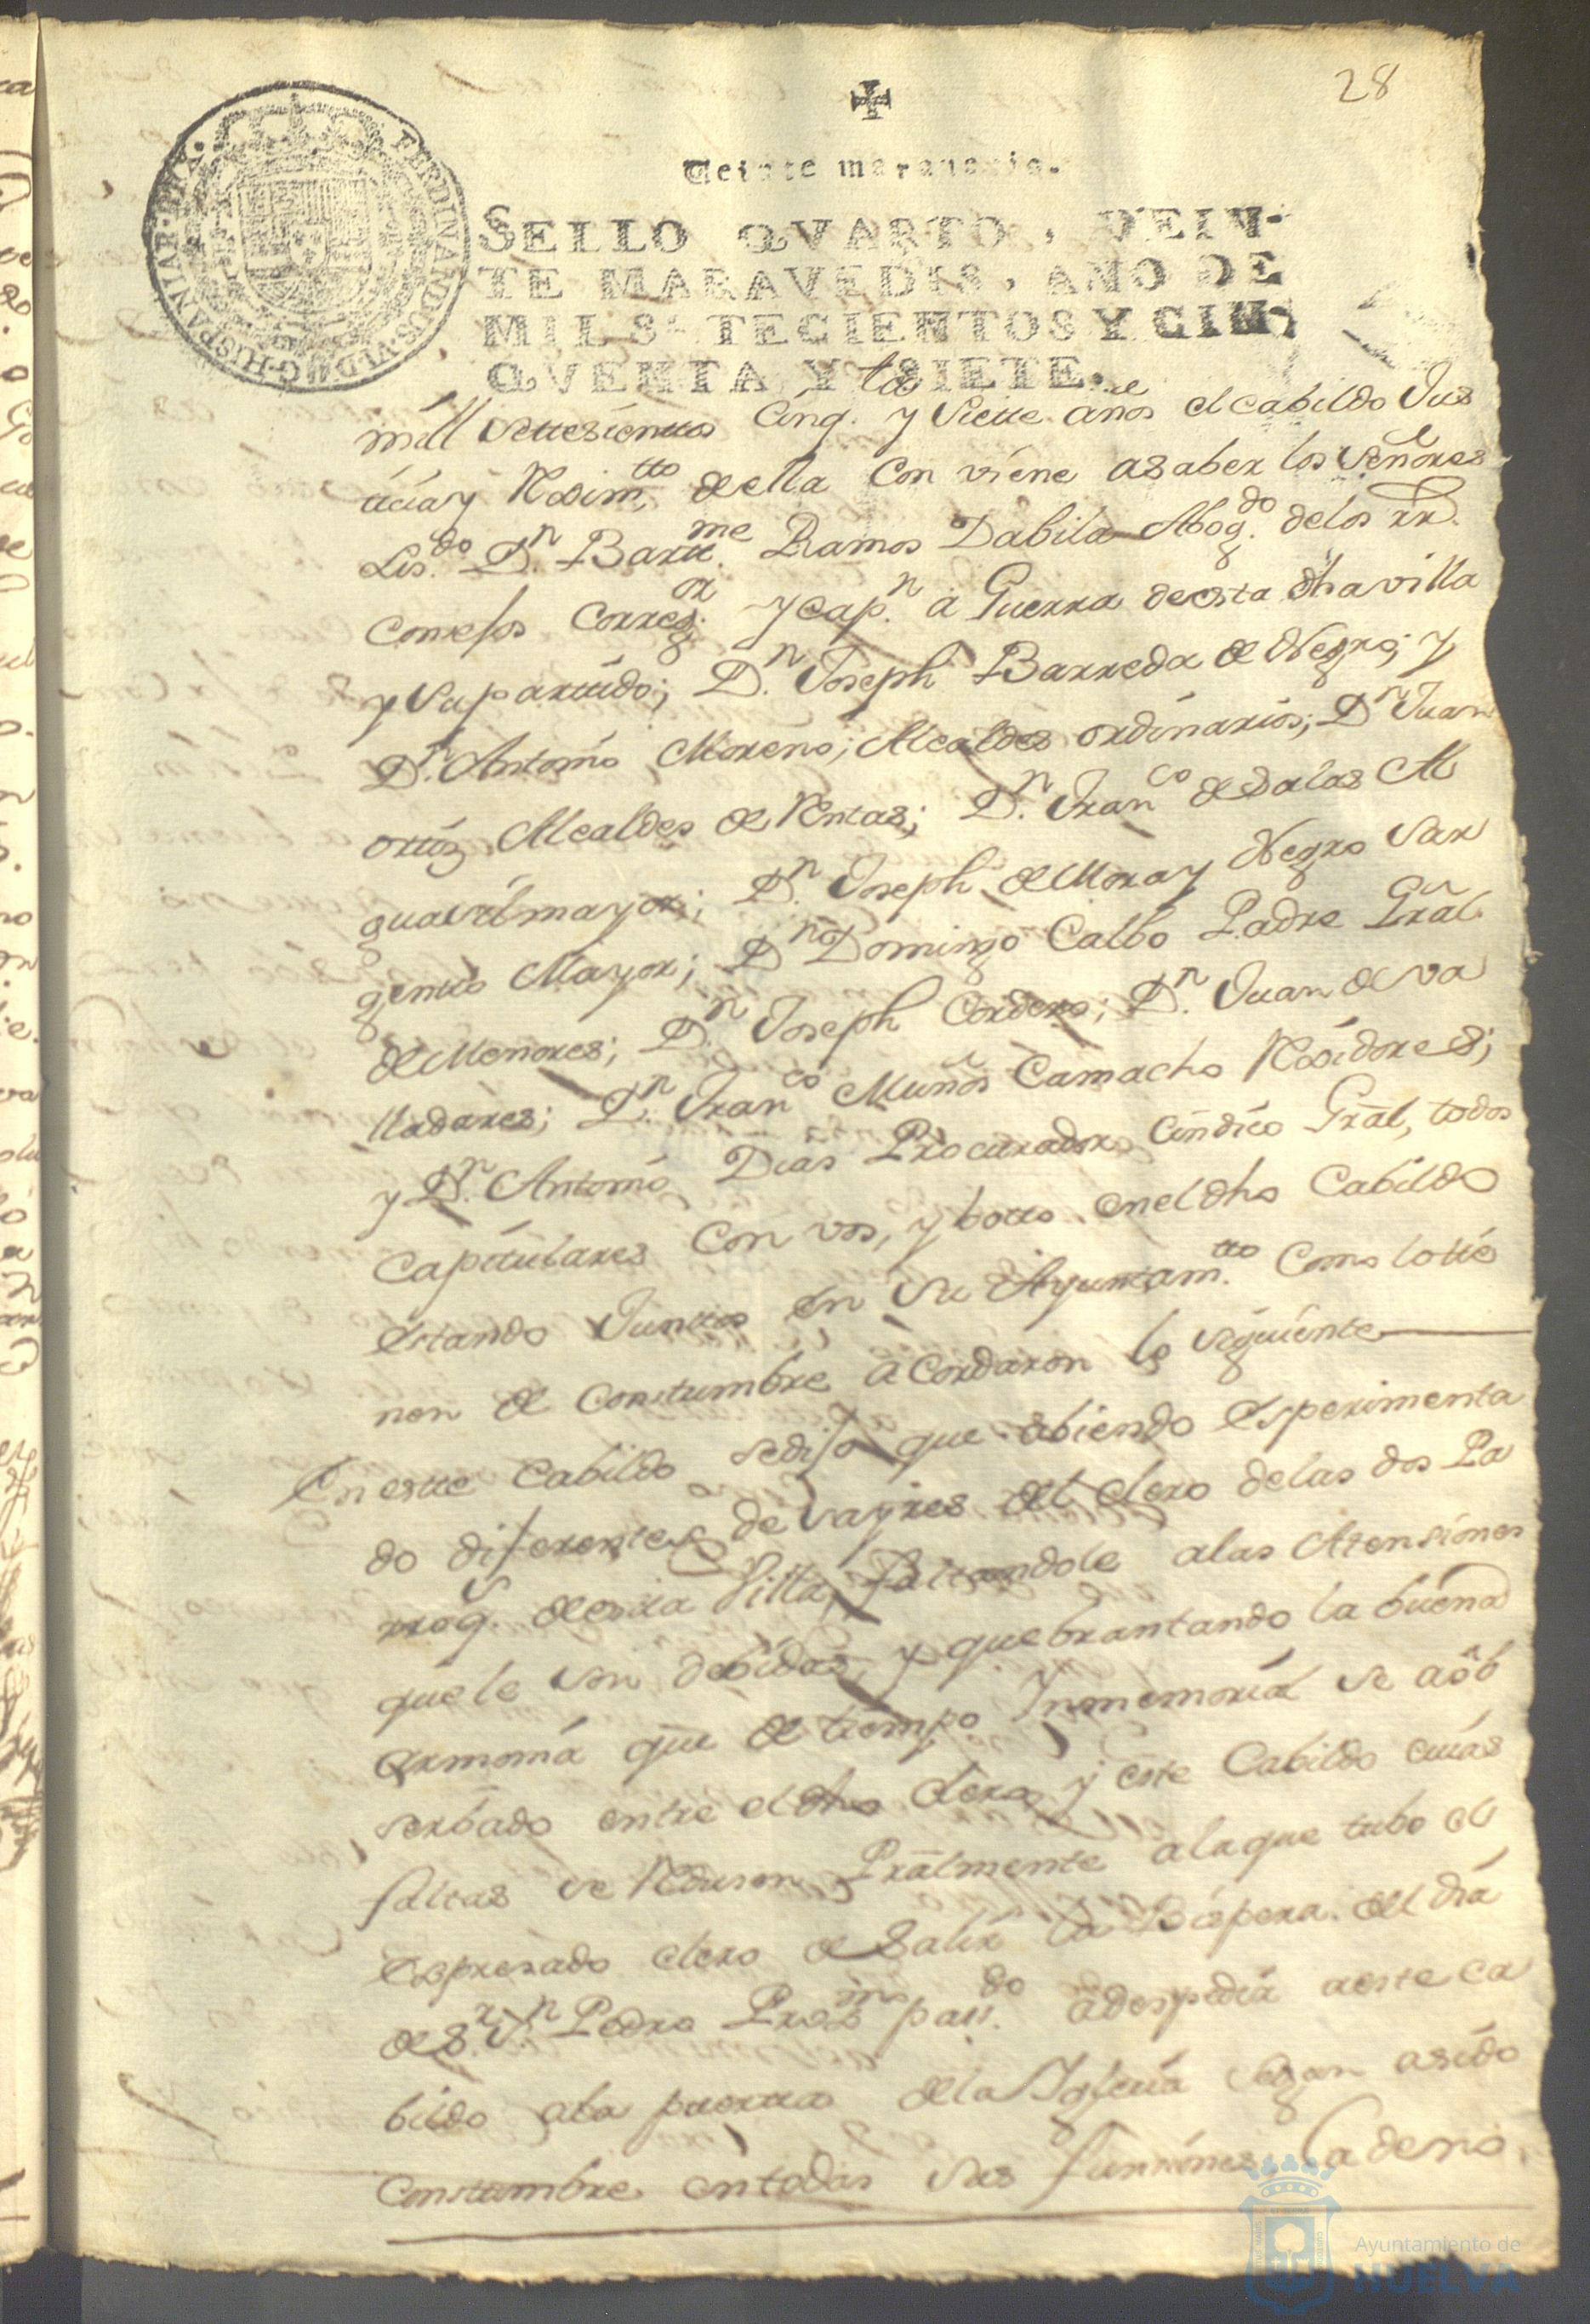 28
Veinte maravedis.
SELLO QVARTO, VEIN-
TE MARAVEDIS, AÑO DE
MIL SETECIENTOS Y CIN-
QVENTA Y SIETE.
FERDINANDUS·VI·D·G·HISPANIAR·REX·
mill settesientos Cinq.ta y Siette años el cabildo Jus
ticia y Rexim.tto de ella Con viene asaber los Señores
Lis.do D.n Bartt.me Ramos Dabila Abog.do delos rr.
Consejos Correg.or y cap.n a Guerra deesta dha villa
y Su parttido; D.n Joseph Barreda de Negro; y
D.n Antonio Moreno; Alcaldes ordinarios; D.n Juan
orttiz Alcaldes de Rentas; D.n Fran.co de Salas Al
guasil mayor; D.n Joseph de Mora y Negro Sar
gentto Mayor; D.n Domingo Calbo Padre Gral.
de Menores; D.n Joseph Cordero; D.n Juan de va
lladares; D.n Fran.co Muños Camacho Rexidores;
y D.n Antonio Dias Procurador Cindico Gral, todos
Capitulares Con vos, y botto enel dho Cabildo
estando Junttos en Su Ayuntam.tto Como lo tie
nen de Constumbre acordaron lo siguiente
En estte Cabildo sedijo que abiendo esperimenta
do diferentes desayres del clero delas dos Pa
rroq.s de esta Villa, faltandole alas Atensiones
quele son debidas, y quebrantando la buena
armonia que de tiempo Inmemorial se a ob
serbado entre el dho clero, y este Cabildo cuias
faltas se Redusen Pralmente ala que tubo el
expresado clero de Salir la Bispera del dia
de S.r S.n Pedro Prox.mo pas.do a despedir a este ca
bildo ala puertta de la Iglecia segun asido
Constumbre en todas sus funsiones,
Ayuntamiento de
HUELVA